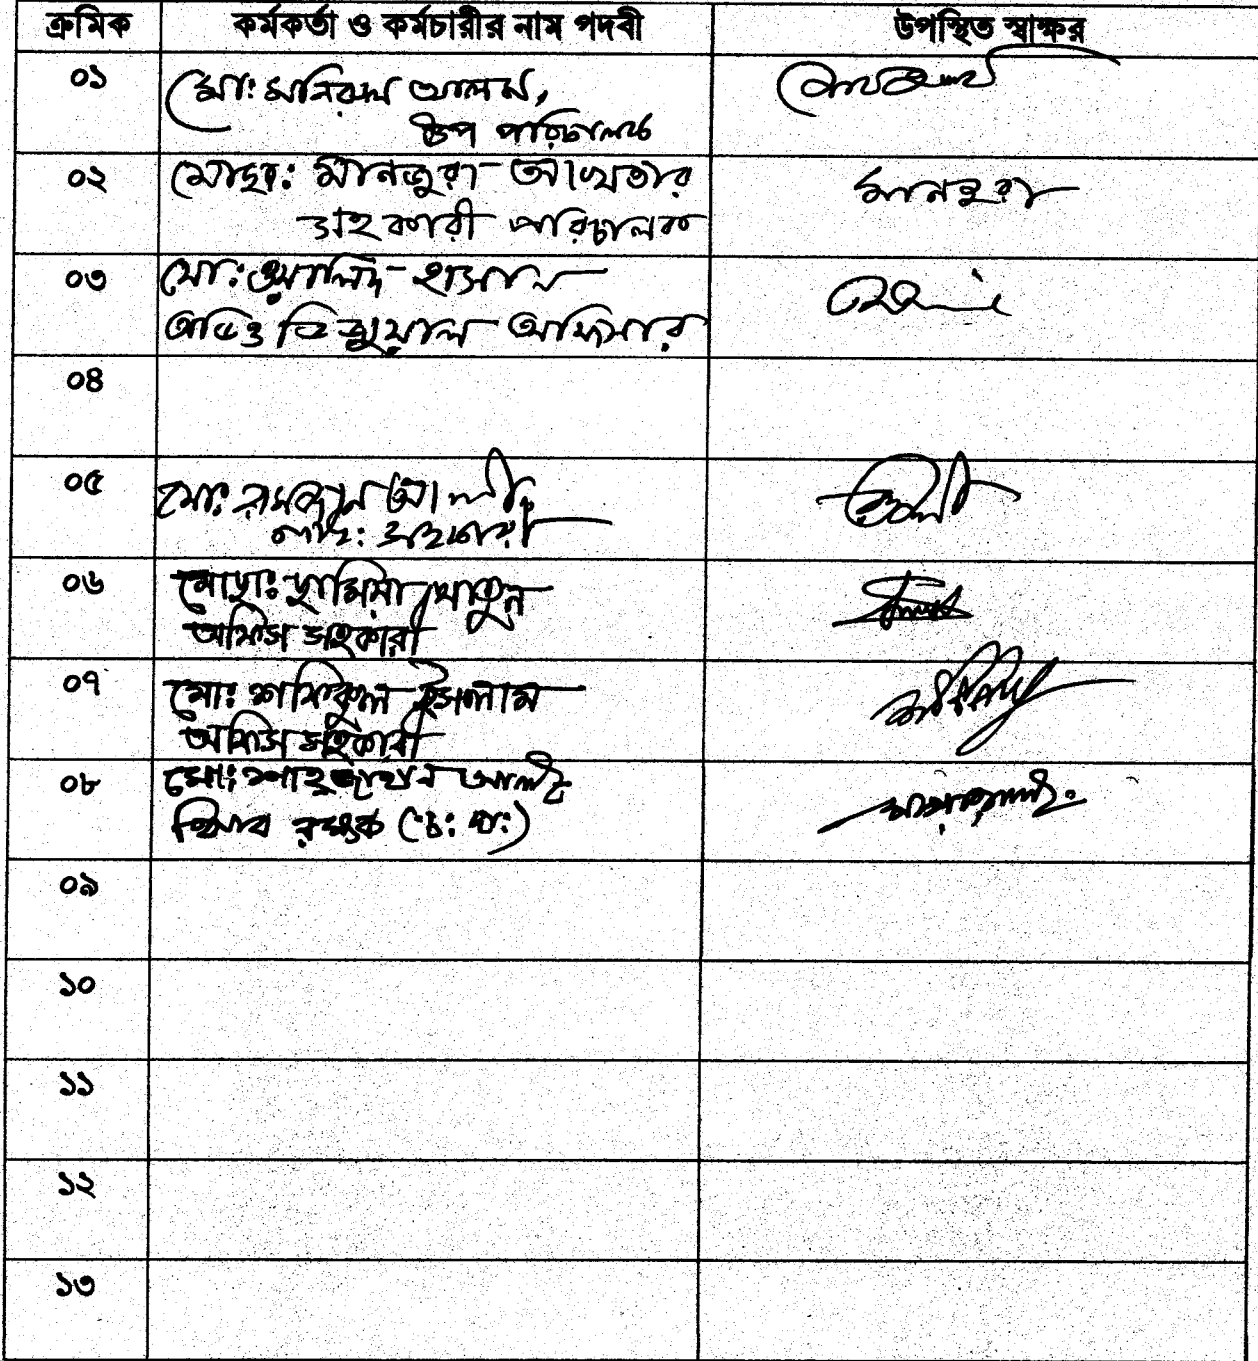 ক্রমিক কর্মকর্তা ও কর্মচারীর নাম পদবী উপস্থিত স্বাক্ষর
০১ মোঃ মনিরুল আলম,
উপ পরিচালক
০২ মোছাঃ মানজুরা আখতার মানজুরা
সহকারী পরিচালক
০৩ মোঃ ওয়ালিদ হাসান
অডিও ভিজুয়াল অফিসার
০৪
০৫ মোঃ রমজান আলী
সহকারী
০৬ মোছাঃ খাতুন
অফিস সহকারী
০৭ মোঃ শফিকুল ইসলাম
অফিস সহকারী
০৮ মোঃ শাহজাহান আলী
হিসাব রক্ষক (চঃ দাঃ)
০৯
১০
১১
১২
১৩